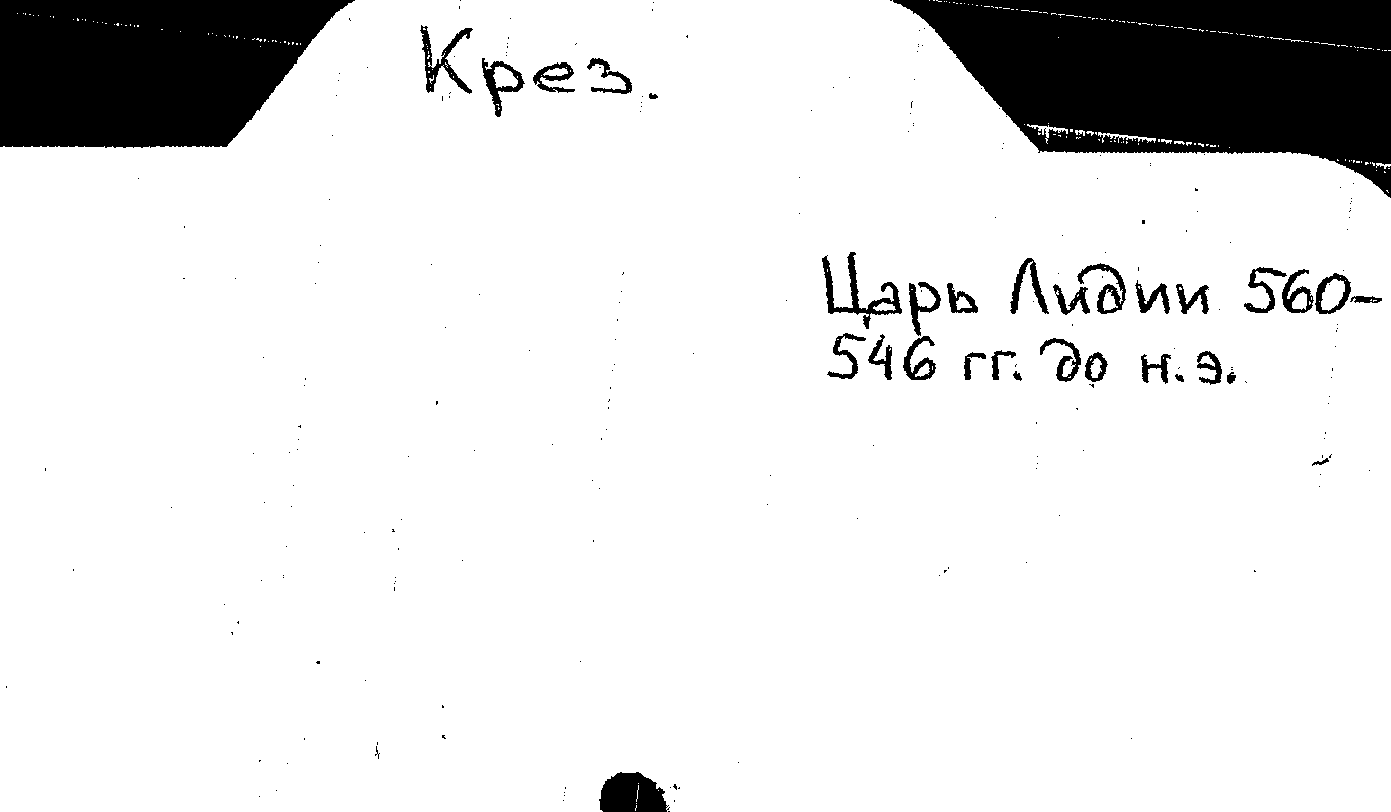 Крез.
Царь Лидии 560-
546 гг. до н.э.